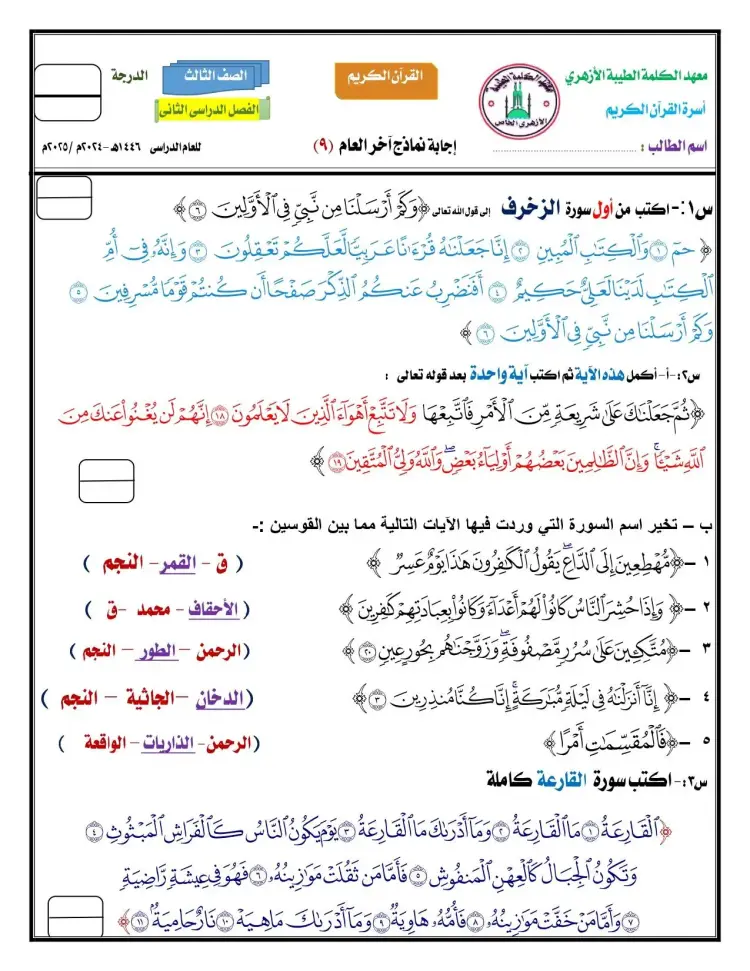 معهد الكلمة الطيبة الأزهري
أسرة القرآن الكريم
اسم الطالب : ........................................
معهد الكلمة الطيبة
الأزهرى الخاص
القرآن الكريم
إجابة نماذج آخر العام (٩)
الصف الثالث
الدرجة
الفصل الدراسى الثانى
للعام الدراسى ١٤٤٦هـ -٢٠٢٤م /٢٠٢٥م
س١:- اكتب من أول سورة الزخرف إلى قول الله تعالى ﴿وَكَمْ أَرْسَلْنَا مِن نَّبِيٍّ فِي الْأَوَّلِينَ ٦﴾
﴿ حمٓ ١ وَالْكِتَٰبِ الْمُبِينِ ٢ إِنَّا جَعَلْنَٰهُ قُرْءَٰنًا عَرَبِيًّا لَّعَلَّكُمْ تَعْقِلُونَ ٣ وَإِنَّهُۥ فِىٓ أُمِّ
الْكِتَٰبِ لَدَيْنَا لَعَلِىٌّ حَكِيمٌ ٤ أَفَنَضْرِبُ عَنكُمُ الذِّكْرَ صَفْحًا أَن كُنتُمْ قَوْمًا مُّسْرِفِينَ ٥
وَكَمْ أَرْسَلْنَا مِن نَّبِيٍّ فِي الْأَوَّلِينَ ٦ ﴾
س٢:- أ- أكمل هذه الآية ثم اكتب آية واحدة بعد قوله تعالى :
﴿ثُمَّ جَعَلْنَٰكَ عَلَىٰ شَرِيعَةٍ مِّنَ الْأَمْرِ فَاتَّبِعْهَا وَلَا تَتَّبِعْ أَهْوَآءَ الَّذِينَ لَا يَعْلَمُونَ ١٨ إِنَّهُمْ لَن يُغْنُوا۟ عَنكَ مِنَ
اللَّهِ شَيْـًٔا ۚ وَإِنَّ الظَّٰلِمِينَ بَعْضُهُمْ أَوْلِيَآءُ بَعْضٍ ۖ وَاللَّهُ وَلِىُّ الْمُتَّقِينَ ١٩ ﴾
ب – تخير اسم السورة التي وردت فيها الآيات التالية مما بين القوسين :-
١ –﴿مُّهْطِعِينَ إِلَى الدَّاعِ ۖ يَقُولُ الْكَٰفِرُونَ هَٰذَا يَوْمٌ عَسِرٌ ﴾ ( ق - القمر - النجم )
٢ –﴿ وَإِذَا حُشِرَ النَّاسُ كَانُوا۟ لَهُمْ أَعْدَآءً وَكَانُوا۟ بِعِبَادَتِهِمْ كَٰفِرِينَ ﴾ ( الأحقاف - محمد -ق )
٣ –﴿مُتَّكِـِٔينَ عَلَىٰ سُرُرٍ مَّصْفُوفَةٍ ۖ وَزَوَّجْنَٰهُم بِحُورٍ عِينٍ ٢٠ ﴾ (الرحمن - الطور - النجم )
٤ –﴿ إِنَّآ أَنزَلْنَٰهُ فِى لَيْلَةٍ مُّبَٰرَكَةٍ ۚ إِنَّا كُنَّا مُنذِرِينَ ٣ ﴾ (الدخان –الجاثية – النجم )
٥ –﴿فَالْمُقَسِّمَٰتِ أَمْرًا﴾ (الرحمن- الذاريات – الواقعة )
س٣:- اكتب سورة القارعة كاملة
﴿الْقَارِعَةُ ١ مَا الْقَارِعَةُ ٢ وَمَآ أَدْرَىٰكَ مَا الْقَارِعَةُ ٣ يَوْمَ يَكُونُ النَّاسُ كَالْفَرَاشِ الْمَبْثُوثِ ٤
وَتَكُونُ الْجِبَالُ كَالْعِهْنِ الْمَنفُوشِ ٥ فَأَمَّا مَن ثَقُلَتْ مَوَٰزِينُهُۥ ٦ فَهُوَ فِى عِيشَةٍ رَّاضِيَةٍ
٧ وَأَمَّا مَنْ خَفَّتْ مَوَٰزِينُهُۥ ٨ فَأُمُّهُۥ هَاوِيَةٌ ٩ وَمَآ أَدْرَىٰكَ مَا هِيَهْ ١٠ نَارٌ حَامِيَةٌۢ ١١ ﴾